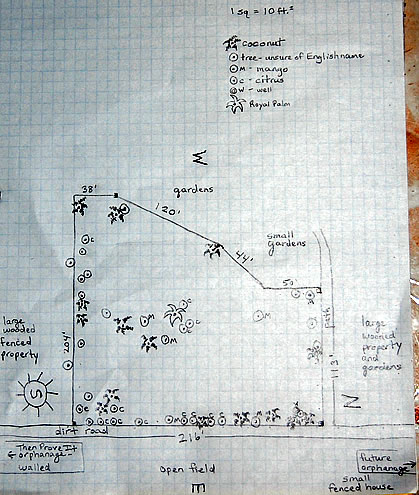 1 sq = 10 ft.²
coconut
tree - unsure of English name
M - mango
C - citrus
W - well
Royal Palm
W
38'
gardens
120'
small
gardens
44'
50
C
C
M
C
C
M
M
path
large
wooded
fenced
property
204'
113'
large
wooned
property
and
gardens
S
N
C
C
C
C
C
M
C
C
dirt road
216'
Then Prove It
orphanage-
walled
open field
future
orphanage
small
fenced house
E